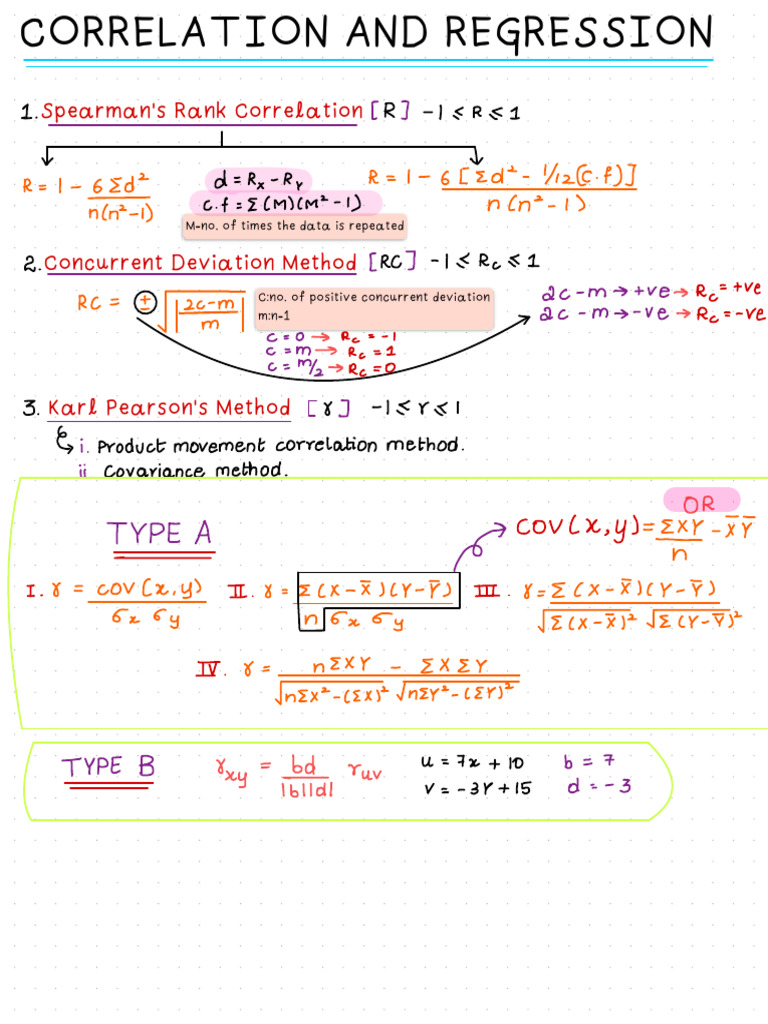 CORRELATION AND REGRESSION
1. Spearman's Rank Correlation [R] -1 ≤ R ≤ 1
R = 1 - 6Σd² / n(n²-1)
d = Rx - RY
C.f = Σ(M)(M²-1)
M-no. of times the data is repeated
R = 1 - 6[Σd² - 1/12(C.f)] / n(n²-1)
2. Concurrent Deviation Method [RC] -1 ≤ Rc ≤ 1
RC = ± √|2c-m / m|
C:no. of positive concurrent deviation
m:n-1
2c-m → +ve → Rc = +ve
2c-m → -ve → Rc = -ve
C = 0 → Rc = -1
C = m → Rc = 1
C = m/2 → Rc = 0
3. Karl Pearson's Method [r] -1 ≤ r ≤ 1
i. Product movement correlation method.
ii Covariance method.
TYPE A
OR
COV(x,y) = ΣXY / n - X̄Ȳ
I. r = COV(x,y) / σx σy
II. r = Σ(X-X̄)(Y-Ȳ) / n σx σy
III. r = Σ(X-X̄)(Y-Ȳ) / √Σ(X-X̄)² √Σ(Y-Ȳ)²
IV. r = nΣXY - ΣXΣY / √nΣX²-(ΣX)² √nΣY²-(ΣY)²
TYPE B
rxy = bd / |b||d| ruv
u = 7x + 10
v = -3Y + 15
b = 7
d = -3